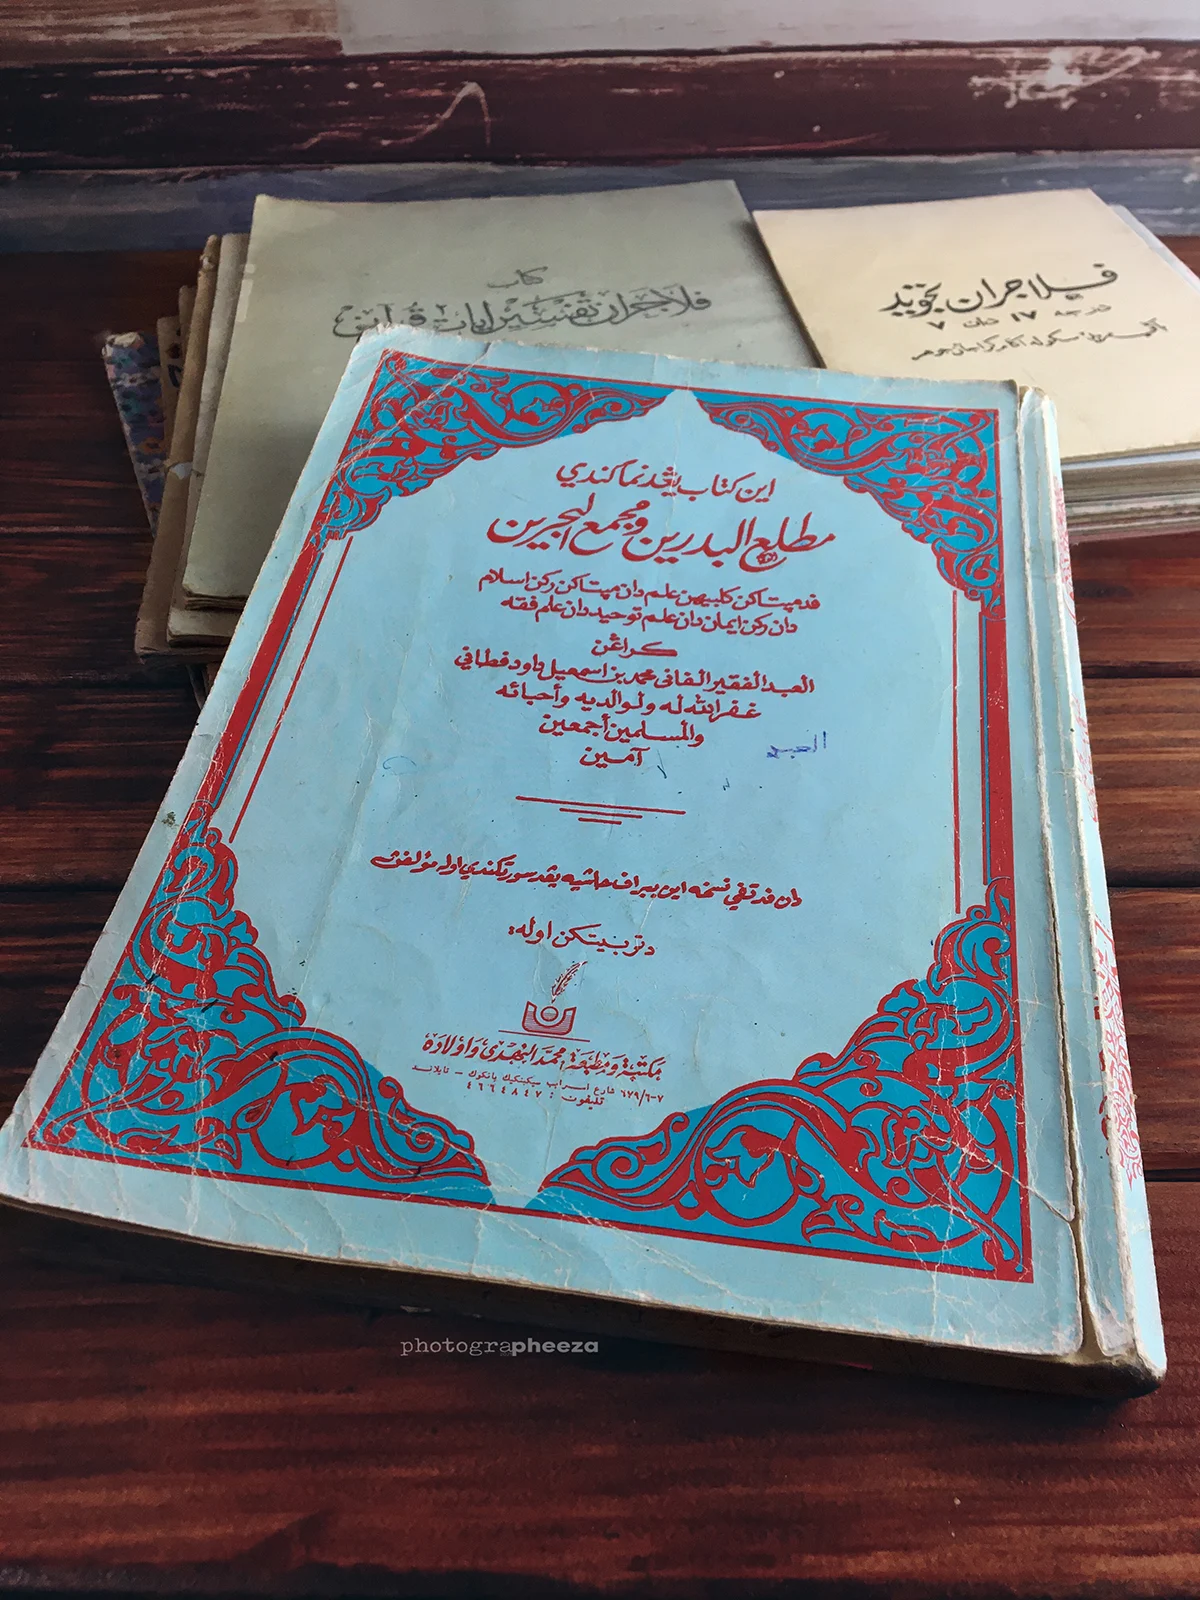 كتاب
فلاجرن تفسير اية٢ قرآن
فلاجران تجويد
درجه ١٧ دان ٧
اين كتاب يڠد نماكندي
مطلع البدرين ومجمع البحرين
فد مڽتاكن كلبيهن علم دان مڽتاكن ركن اسلام
دان ركن ايمان دان علم توحيد دان علم فقه
كراڠن
العبد الفقير الفانى محمد بن اسمعيل داود فطاني
غفر الله له ولوالديه وأحبائه
والمسلمين أجمعين
آمين
دان فد تڤي نسخه اين ببراف حاشيه يڠد سورتكندي اوله مؤلفڽ
دتربيتكن اوله:
مكتبة ومطبعة محمد النهدي وأولاده
٦٧٩/٦-٧ شارع اسراب سيكيكيك بانكوك - تايلاند
تليفون : ٤٦٦٤٨٤٧
photographeeza